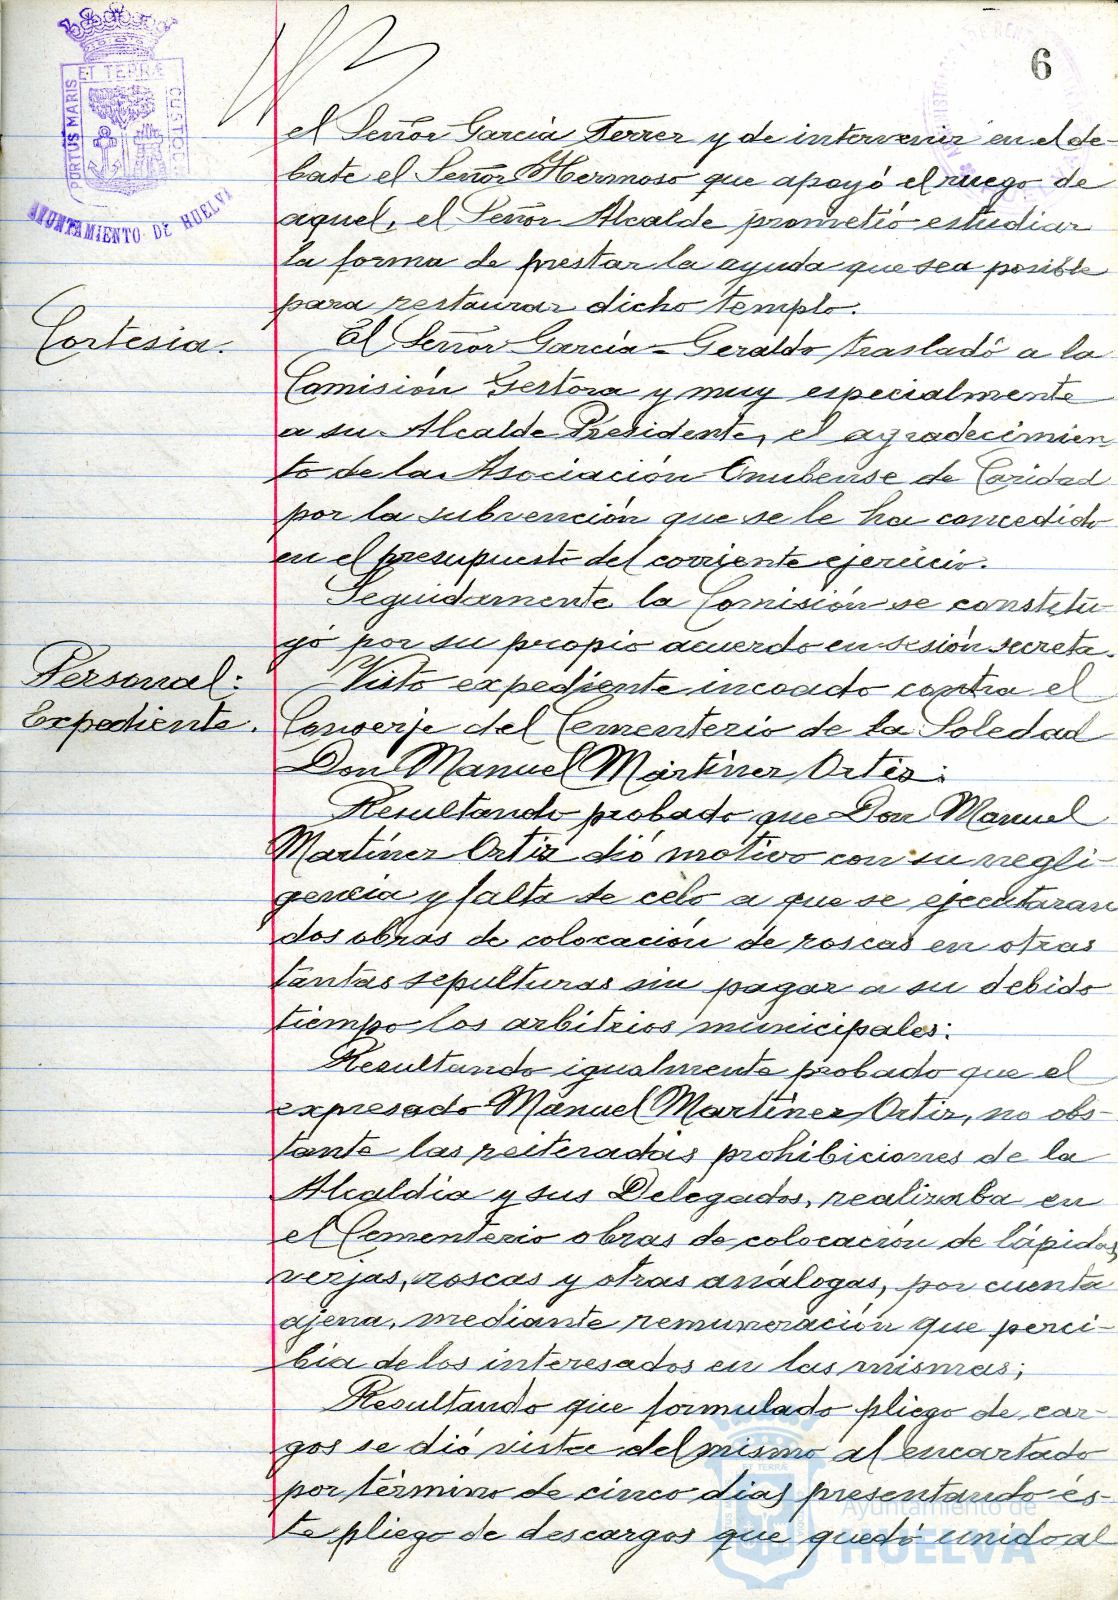 6
ET TERRÆ
PORTUS MARIS
CUSTOD
AYUNTAMIENTO DE HUELVA
el Señor García Ferrer y de intervenir en el de-
bate el Señor Hermoso que apoyó el ruego de
aquel, el Señor Alcalde prometió estudiar
la forma de prestar la ayuda que sea posible
para restaurar dicho templo.
Cortesia.
El Señor García-Geraldo trasladó a la
Comisión Gestora y muy especialmente
a su Alcalde Presidente, el agradecimien
to de la Asociación Onubense de Caridad
por la subvención que se le ha concedido
en el presupuesto del corriente ejercicio.
Seguidamente la Comisión se constitu
yó por su propio acuerdo en sesión secreta.
Personal:
Expediente.
Visto expediente incoado contra el
Conserje del Cementerio de la Soledad
Don Manuel Martínez Ortiz:
Resultando probado que Don Manuel
Martínez Ortiz dió motivo con su negli-
gencia y falta de celo a que se ejecutaran
dos obras de colocación de roscas en otras
tantas sepulturas sin pagar a su debido
tiempo los arbitrios municipales:
Resultando igualmente probado que el
expresado Manuel Martínez Ortiz, no obs-
tante las reiteradas prohibiciones de la
Alcaldia y sus Delegados, realizaba en
el Cementerio obras de colocación de lápidas,
verjas, roscas y otras análogas, por cuenta
ajena, mediante remuneración que perci-
bia de los interesados en las mismas;
Resultando que formulado pliego de car-
gos se dió vista del mismo al encartado
por término de cinco dias presentando és-
te pliego de descargos que quedó unido al
Ayuntamiento de
HUELVA